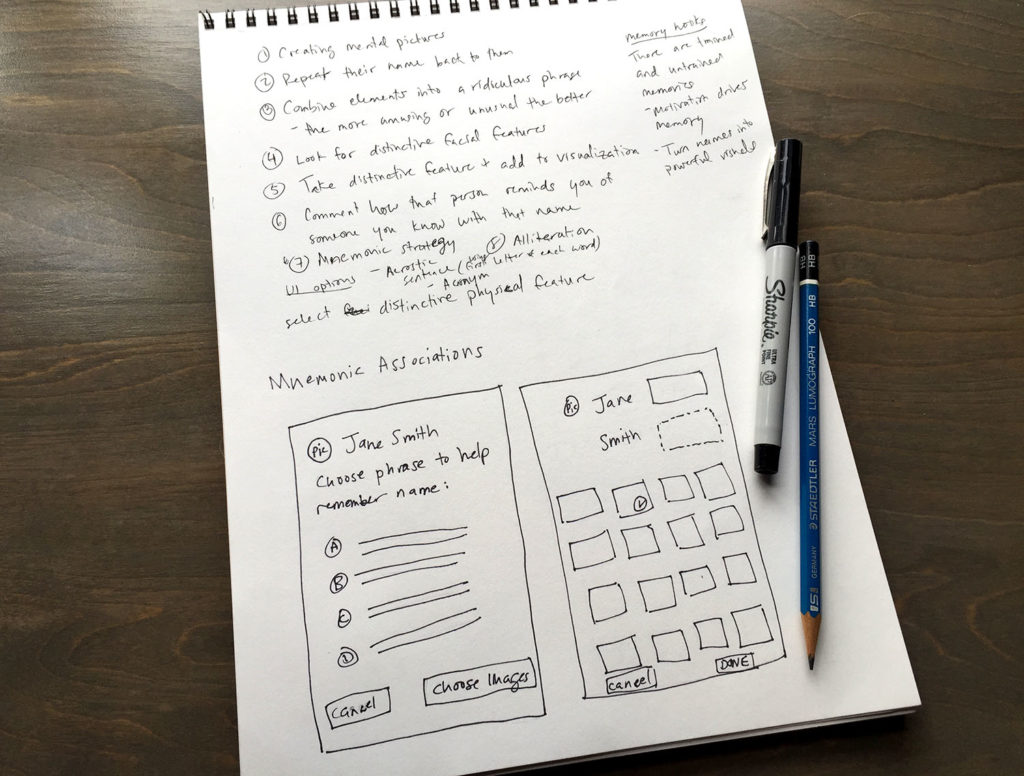 ① Creating mental pictures
② Repeat their name back to them
③ Combine elements into a ridiculous phrase
- the more amusing or unusual the better
④ Look for distinctive facial features
⑤ Take distinctive feature + add to visualization
⑥ Comment how that person reminds you of
someone you know with that name
⑦ Mnemonic strategy ⑧ Alliteration
UI options - Acrostic
sentence (first letter of each word)
- Acronym
select distinctive physical feature
memory hooks
There are trained
and untrained
memories
- Motivation drives
memory
- Turn names into
powerful visuals
Mnemonic Associations
Pic Jane Smith
Choose phrase to help
remember name:
A
B
C
D
Cancel
Choose Images
Pic Jane
Smith
Cancel
DONE
Sharpie
ULTRA
FINE
POINT
AP
HB
HB
STAEDTLER MARS LUMOGRAPH 100 HB
GERMANY